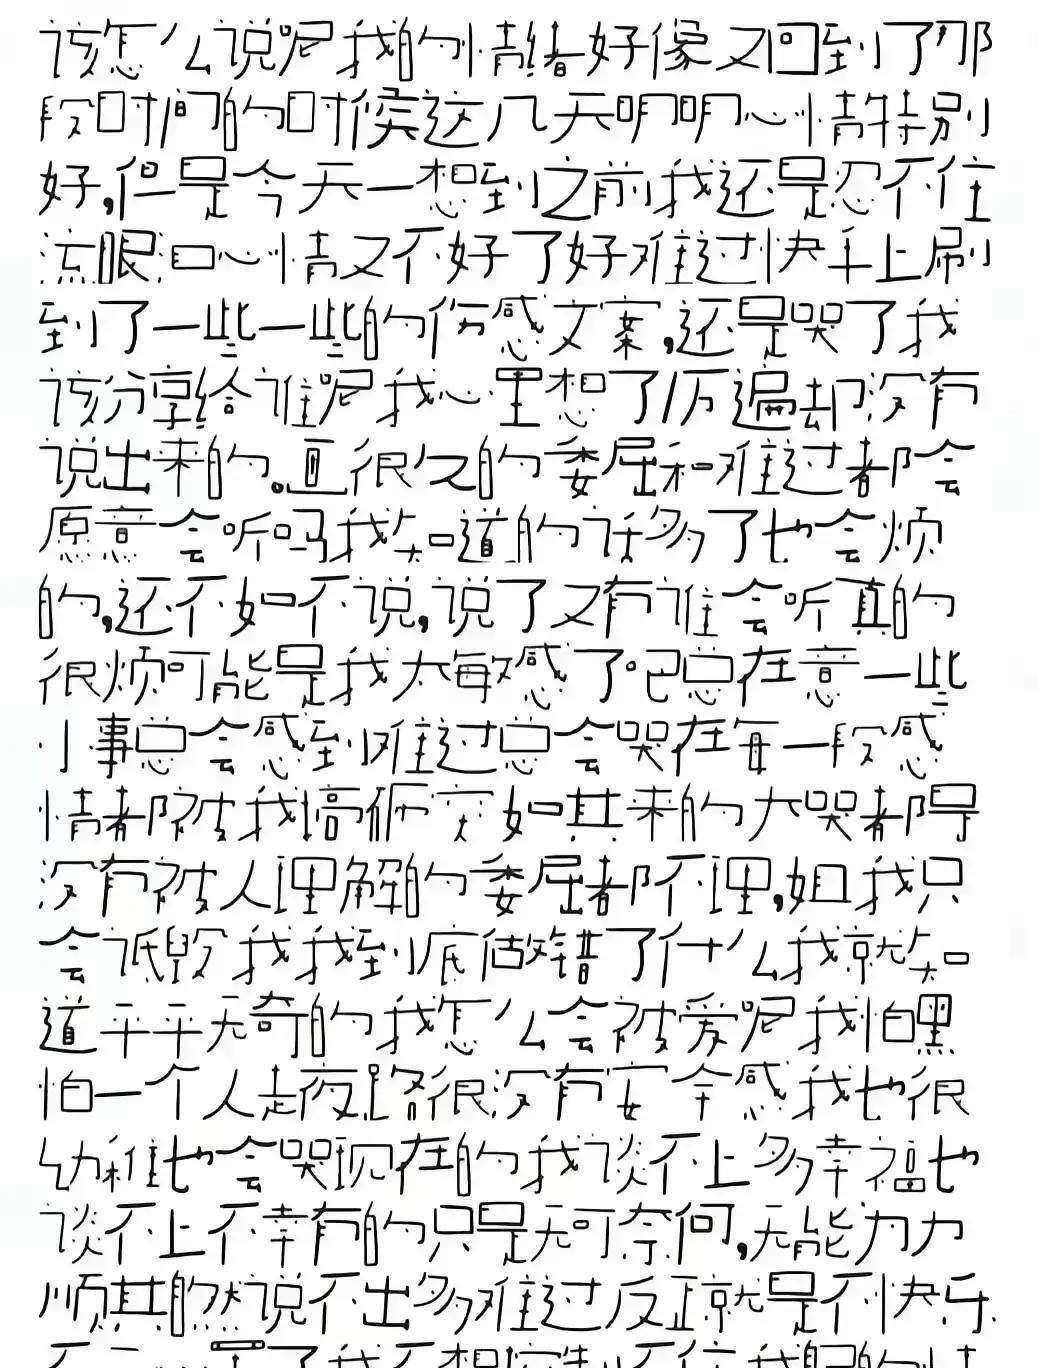 该怎么说呢我的情绪好像又回到了那
段时间的时候这几天明明心情特别
好,但是今天一想到之前我还是忍不住
流眼泪心情又不好了好难过快手上刷
到了一些一些的伤感文案,还是哭了我
该分享给谁呢我心里想了万遍却没有
说出来的。直很久的委屈和难过都会
愿意会听吗我知道的话多了也会烦
的,还不如不说,说了又有谁会听真的
很烦可能是我太敏感了吧总在意一些
小事总会感到难过总会哭在每一段感
情都被我搞砸突如其来的大哭都是
没有被人理解的委屈都不理,姐我只
会诋毁我我到底做错了什么我就知
道平平无奇的我怎么会被爱呢我怕黑
怕一个人走夜路很没有安全感我也很
幼稚也会哭现在的我谈不上多幸福也
谈不上不幸有的只是无可奈何,无能为力
顺其自然说不出多难过反正就是不快乐.